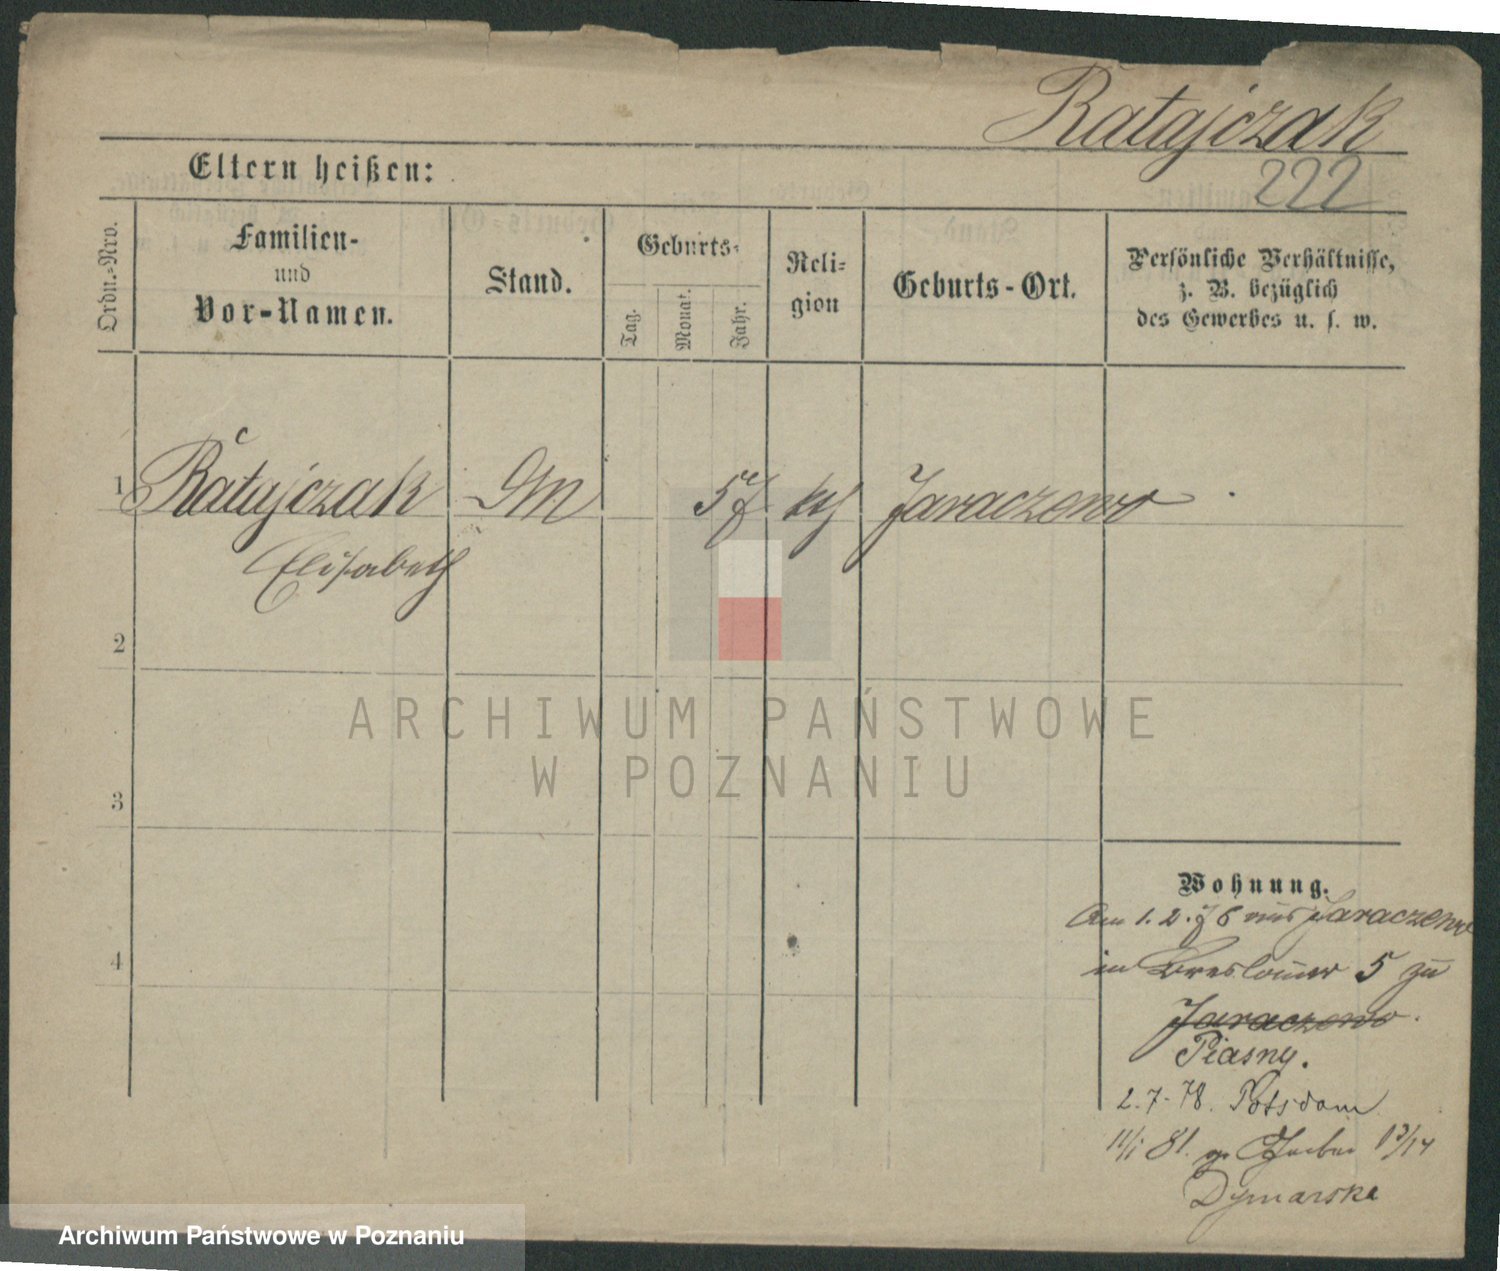 Ratajczak
222
Eltern heißen:
Ordn.-Nro.
Familien-
und
Vor-Namen.
Stand.
Geburts-
Tag.
Monat.
Jahr.
Reli-
gion
Geburts-Ort.
Persönliche Verhältnisse,
z. B. bezüglich
des Gewerbes u. s. w.
1 Ratajczak DM 57 kth Jaraczewo
Elisabeth
2
3
4
ARCHIWUM PAŃSTWOWE
W POZNANIU
Wohnung.
Am 1. 2. 76 aus Jaraczewo
in Breslauer 5 zu
Jaraczewo.
Piasny.
2. 7. 78. Potsdam
11/1 81. Gerber 13/14
Dymarska
Archiwum Państwowe w Poznaniu